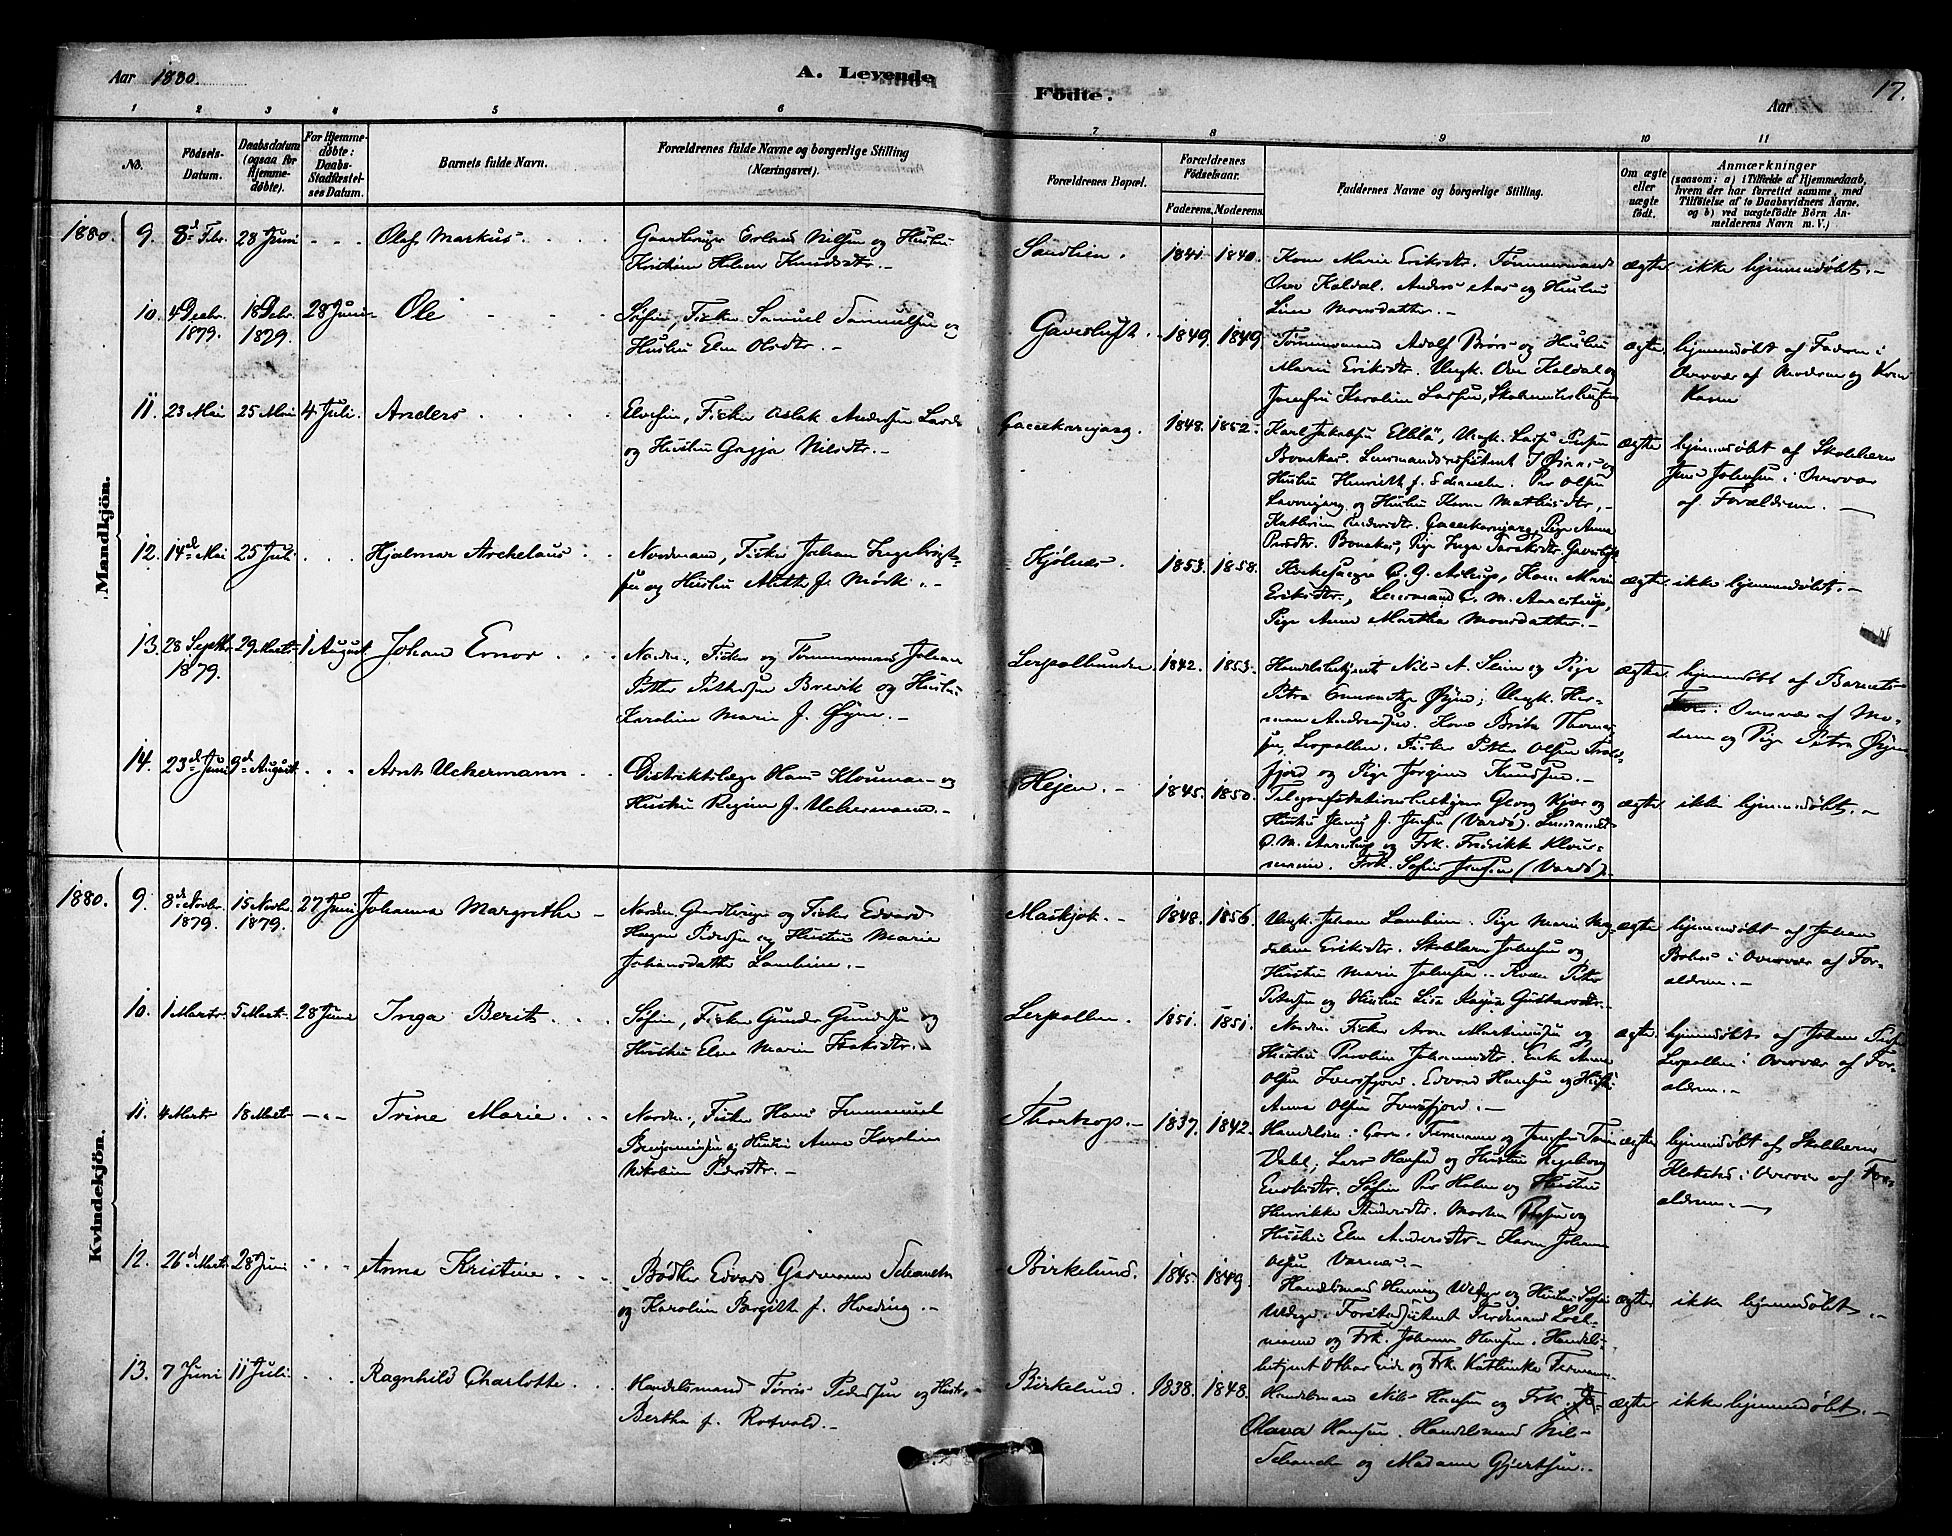 Aar 1880.
A. Levende
Födte.
Aar
17.
1 2 3 4 5 6 7 8 9 10 11
No.
Födsels-Datum.
Daabsdatum (ogsaa for Hjemmedøbte).
For Hjemmedøbte: Daabs-Stadfæstelses Datum.
Barnets fulde Navn.
Forældrenes fulde Navne og borgerlige Stilling (Næringsvei).
Forældrenes Bopæl.
Forældrenes Födselsaar.
Faderens. Moderens.
Faddernes Navne og borgerlige Stilling.
Om ægte eller uægte födt.
Anmærkninger
(saasom: a) i Tilfælde af Hjemmedaab, hvem der har forrettet samme, med Tilföielse af to Daabsvidners Navne. og b) ved uægtefödte Börn Anmelderens Navn m. V.)
Mandkjön.
1880. 9. 8de Febr. 28 Juni Olaf Markus
Gaardbruger Erland Nilsen og Hustru
Kristine Helene Knudsdtr.
Sandlien. 1841. 1840.
Kone Marie Eriksdtr. Tømmermand
Ove Kaldal. Anders Aas og Hustru
Line Monsdatter.
ægte ikke hjemmedøbt.
10. 4 Decbr. 1879. 18 Debr. 1879. 28 Juni Ole
Søfin, Fisker Samuel Samuelsen og
Hustru Elen Olsdtr.
Gavesluft. 1849. 1849.
Tømmermand Adolf Brørs og Hustru
Marie Eriksdtr. Ungk. Ove Kaldal og
Josefine Karoline Larsen,
ægte. hjemmedøbt af Faderen i
Overvær af Moderen og Kone
Karen
11. 23 Mai 25 Mai 4 Juli Anders
Elvefin, Fisker Aslak Andersen
og Hustru Nilsdtr.
1848. 1852.
Karl Jakobsen Ungk. Lars Persen
Bonakas. Lensmandsassistent og
Hustru Henriette f. Per Olsen
og Hustru Karen Mathisdtr,
Kathrine Andersdtr. Pige Anne
Persdtr. Bonakas, Pige Inga
ægte hjemmedøbt af Skolelærer
Jens Johnsen i Overvær
af Forældrene.
12. 14de Mai 25 Juli Hjalmar Archelaus
Nordmand, Fisker Johan Ingebrigt-
sen og Hustru Mette f. Mørk.
Kjølnæs. 1853. 1858.
Kirkesanger O. J. Astrup, Kone Marie
Eriksdtr., Lensmand O. M. Aarestrup,
Pige Anne Martha Monsdatter.
ægte ikke hjemmedøbt.
13. 28 Septbr. 1879. 29 Marts 1 August. Johan Ernor
Nordm., Fisker og Tømmermand Johan
Petter Pettersen Brevik og Hustru
Karoline Marie f. Øyen.
Lerpolbunden 1842. 1853.
Handelsbetjent Nils A. Slem og Pige
Petra Øyen; Ungk. Her-
man Andreassen. Kone Brita Thomas-
sen, Lerpollen. Fisker Petter Olsen
fjord og Pige Jorgine Knudsen.
ægte hjemmedøbt af Barnets
i Overvær af Mo-
deren og Pige Petra Øyen
14. 23de Juni 9de August Arnt Uchermann
Distriktslæge Hans Klouman og
Hustru Regine f. Uchermann.
Hejen. 1845. 1850.
Telegrafstationsbestyrer Georg Kjær og
Hustru Jenny f. Jensen (Vardø). Lensmand
O. M. Aarestrup og Frk. Fredrikke Klou-
mann. Frk. Sofie Jensen (Vardø).
ægte. ikke hjemmedøbt.
Kvindekjön.
1880. 9. 8de Novbr. 1879. 15 Novbr. 1879. 27 Juni Johanna Margrethe
Nordm. Gaardbruger og Fisker Edvard
Hagen Pedersen og Hustru Marie
Johansdatter Lambine.
Maskjok. 1848. 1856.
Ungk. Johan Lambine. Pige Marie Mag-
dalene Eriksdtr. Skolelærer Johnsen og
Hustru Marie Johnsen. Kvæn Peter
Petersen og Hustru Lisa Kajsa Gustavsdtr.
ægte hjemmedøbt af Johan
i Overvær af For-
ældrene.
10. 1 Marts 5 Marts 28 Juni Inga Berit
Søfin, Fisker Gunder Gundersen og
Hustru Elen Marie Isaksdtr.
Lerpollen. 1851. 1851.
Nordm. Fisker Aron Martinusen og
Hustru Paroline Johannesdtr. Enke Anne
Olsen Iversfjord. Edvard Hansen og Hustru
Anna Olsen Iversfjord.
ægte. hjemmedøbt af Johan
Lerpollen i Overvær af For-
ældrene.
11. 4 Marts 18 Marts Trine Marie
Nordm., Fisker Hans Immanuel
Benjaminsen og Hustru Anne Karoline
Nikoline Pedersdtr.
Thorskop. 1837. 1842.
Dahl; Lars Hansen og Hustru Ingeborg
Søfin Per Helen og Hustru
Henrikke Andersdtr. Morten
Hustru Elen Andersdtr. Karen Johanne
Olsen Varnæs.
ægte hjemmedøbt af Skolelærer
Klokstad i Overvær af For-
ældrene.
12. 26de Marts 28 Juni Anna Kristine
Bødker Edvard Garmann Schanche
og Karoline Birgitte f. Hveding.
Birkelund. 1845. 1849.
Handelsmand Henning Wedege og Hustru Sofie
Wedege. Forstassistent Ferdinand Loch-
mann og Frk. Johanne Hansen. Handels-
betjent Othar Eide og Frk. Kathinka
ægte ikke hjemmedøbt.
13. 7 Juni 11 Juli Ragnhild Charlotte
Handelsmand Tørris Pedersen og Hustr.
Bertha f. Rotvold.
Birkelund. 1838. 1848.
Handelsmand Nils Hansen og Frk.
Olava Hansen. Handelsmand Nils
Schanche og Madame Gjertsen.
ægte ikke hjemmedøbt.